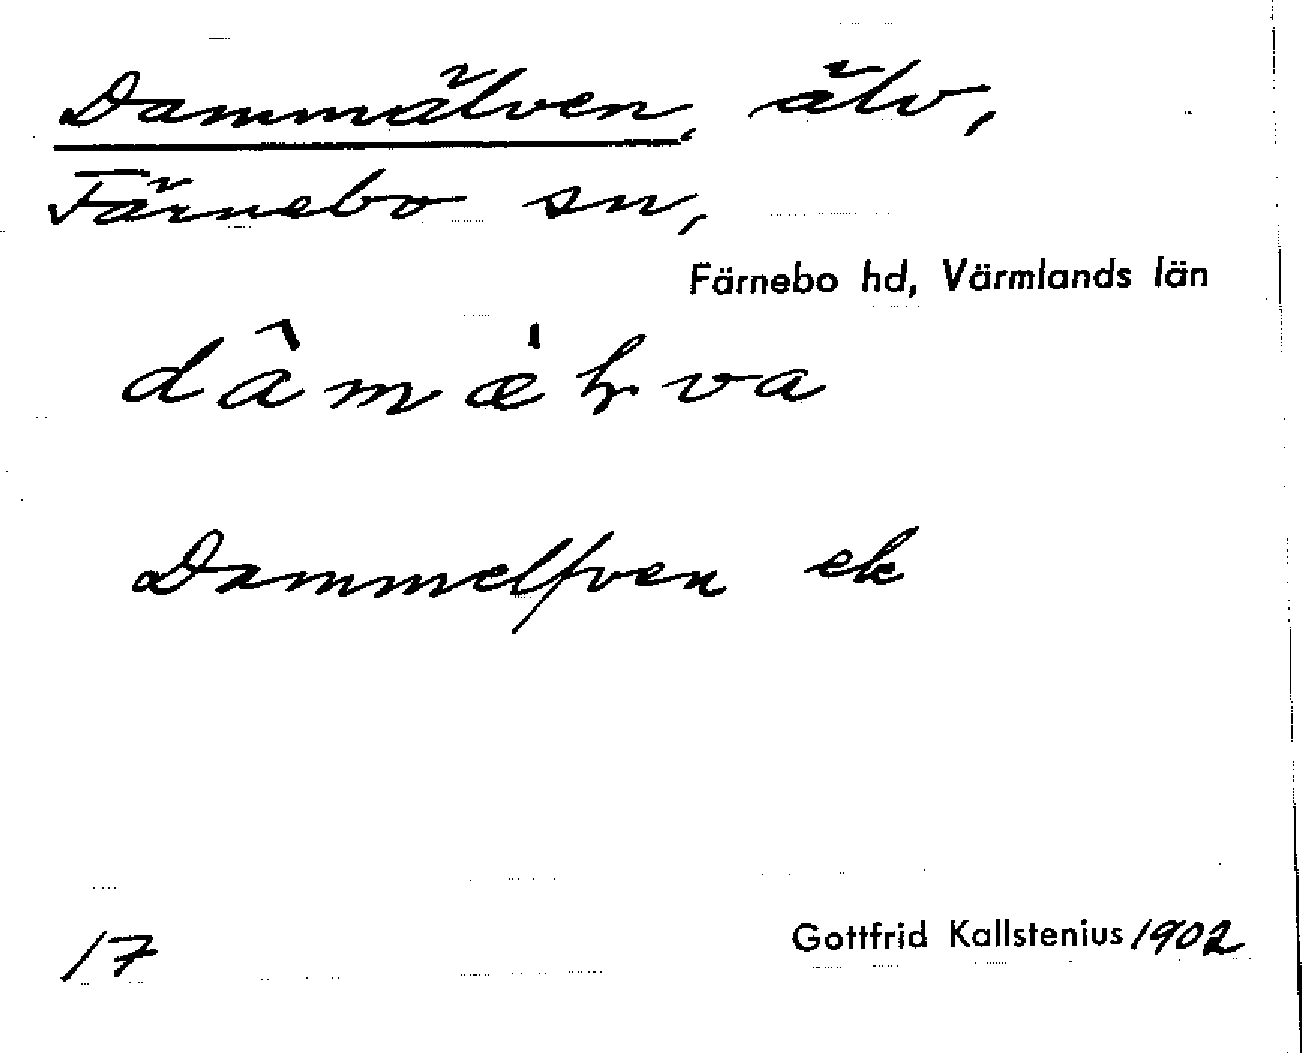 Dammälven, älv,
Färnebo sn,
Färnebo hd, Värmlands län
dâmæ̀ḷva
Dammelfven ek
17
Gottfrid Kallstenius 1902